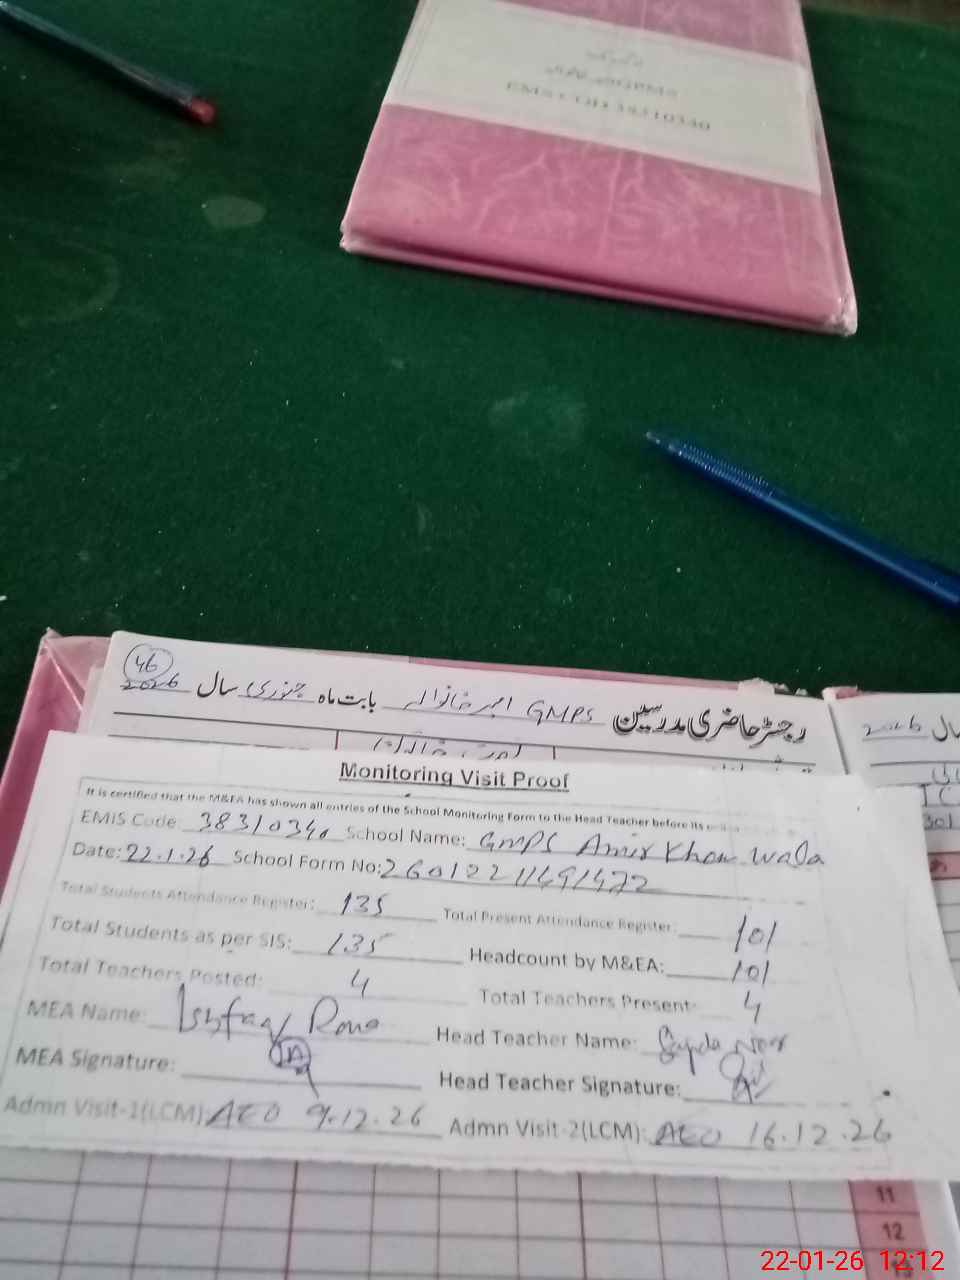 GPMS
EMS COD 38310340
46
رجسٹر حاضری مدرسین GMPS امیر خانوالہ بابت ماہ جنوری سال 2026
Monitoring Visit Proof
It is certified that the M&EA has shown all entries of the School Monitoring Form to the Head Teacher before its
EMIS Code: 38310340 School Name: GMPS Amir Khan wala
Date: 22.1.26 School Form No: 26012211491472
Total Students Attendance Register: 135 Total Present Attendance Register: 101
Total Students as per SIS: 135 Headcount by M&EA: 101
Total Teachers Posted: 4 Total Teachers Present: 4
MEA Name: Ishfaq Rana Head Teacher Name: Noor
MEA Signature: Head Teacher Signature:
Admn Visit-1(LCM): AEO 9.12.26 Admn Visit-2(LCM): AEO 16.12.26
11
12
22-01-26 12:12